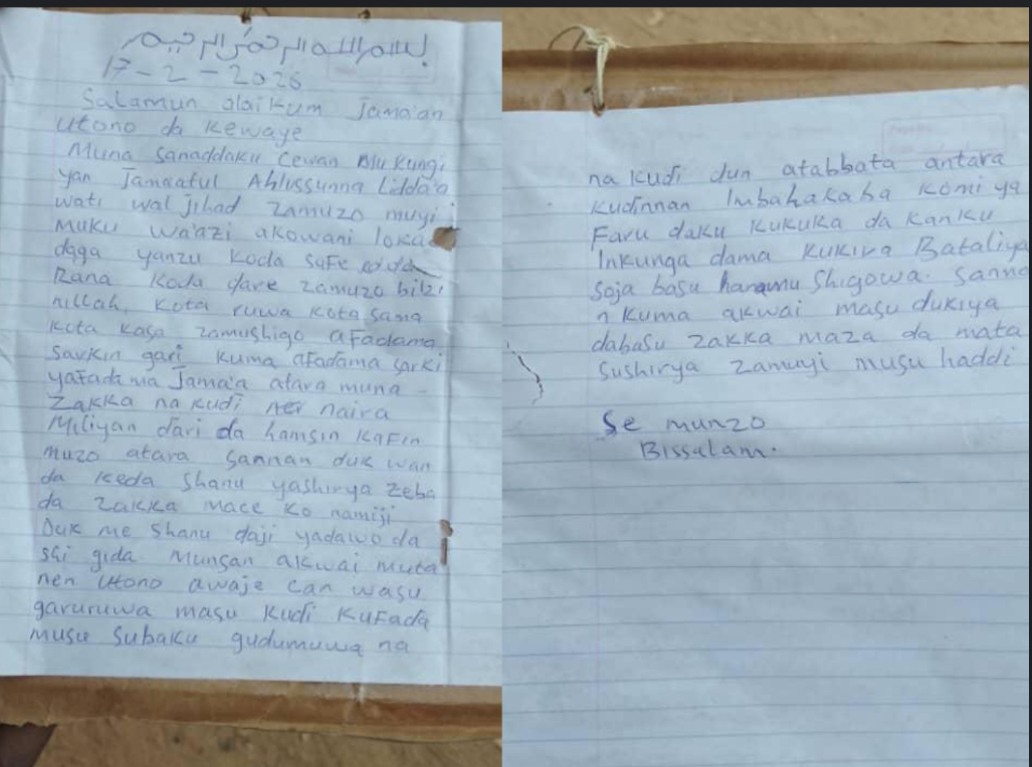 بسم الله الرحمن الرحيم
17-2-2026
Salamun alaikum Jama'an
Utono da Kewaye
Muna Sanaddaku Cewan Mu Kungi
yan Jamaatul Ahlussunna Lidda'a
wati wal Jihad Zamuzo muyi
Muku wa'azi akowani loka
daga yanzu Koda Safe
Rana Koda dare zamuzo bilzi
nillah, Kota ruwa Kota Sama
Kota Kasa zamushigo afadama
Sarkin gari Kuma afadama sarki
yafadama Jama'a atara muna
Zakka na Kudi naira
Miliyan dari da hamsin Kafin
Muzo atara Sannan duk wan
da Keda Shanu yashirya Zeba
da Zakka Mace Ko namiji
Duk me Shanu daji yadawo da
Sai gida Munsan akwai muta
nen Utono awaje can wasu
garuruwa masu Kudi Kufada
musu Subaku gudumuwa na
na Kudi dun atabbata antara
Kudinnan Imbahakaba Komi ya
Faru daku KuKuKa da Kanku
Inkunga dama KuKira Bataliya
Soja basu hanamu Shigowa. Sanna
n Kuma akwai masu dukiya
dabasu Zakka maza da mata
Sushirya Zamuyi musu haddi
Se munzo
Bissalam.